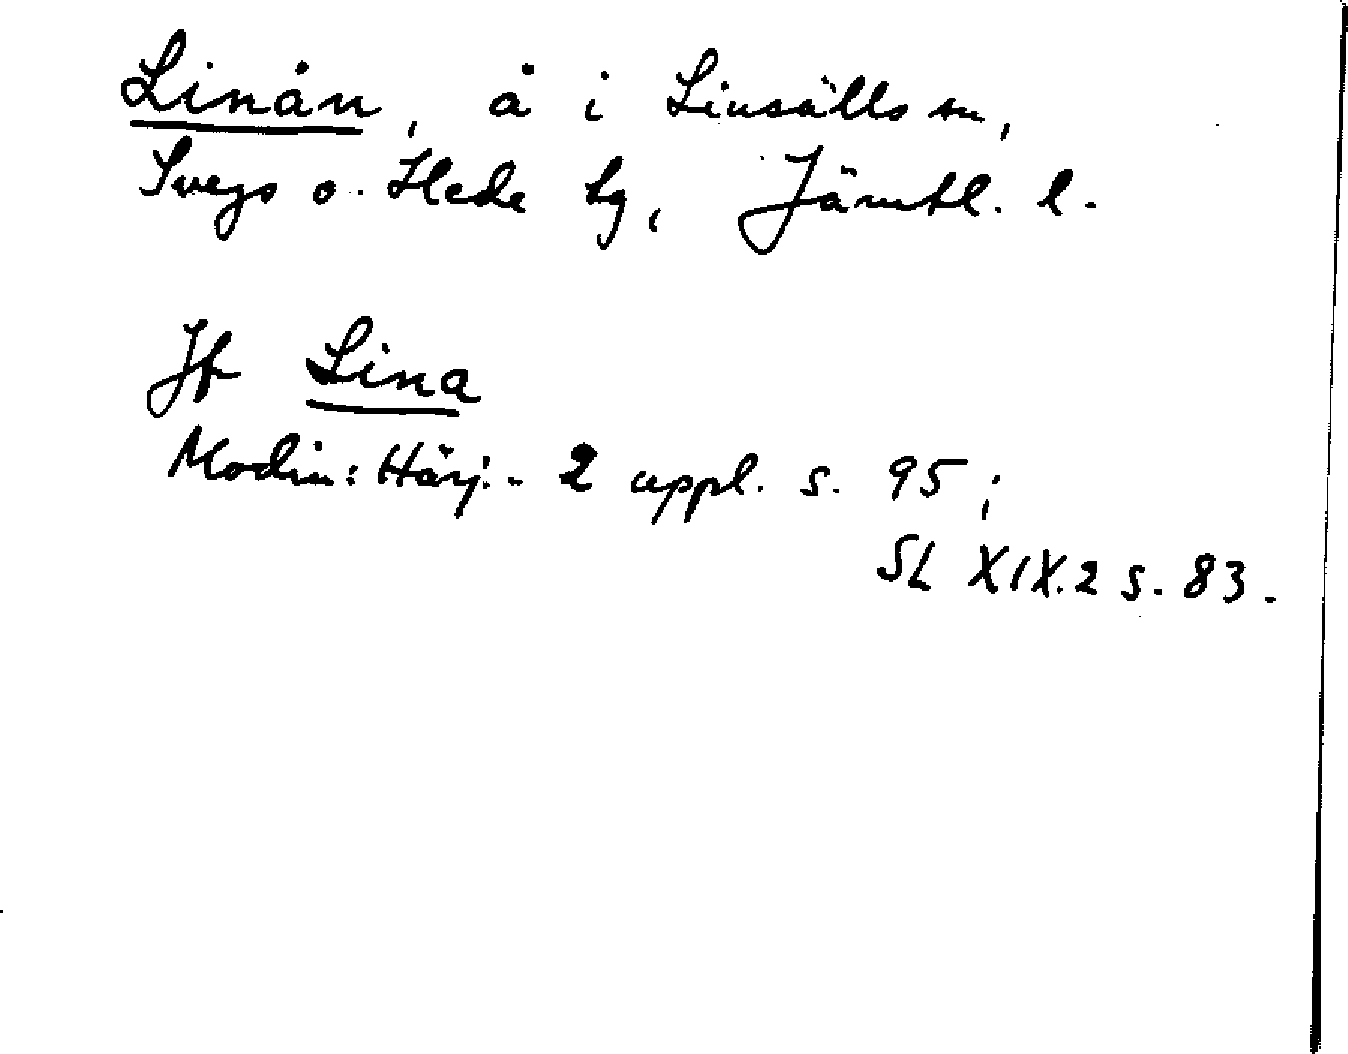 Linån, å i Linsälls sn,
Svegs o. Hede tg, Jämtl. l.
Jf Lina
Modin: Härj. - 2 uppl. s. 95;
SL XIX.2 s. 83.